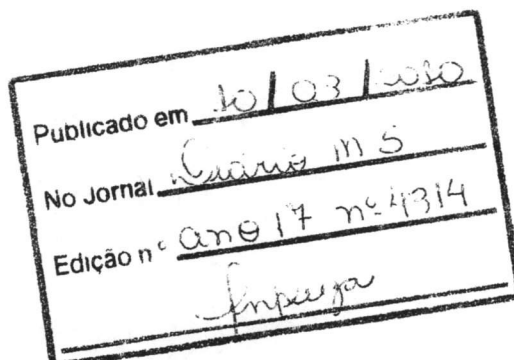 Publicado em 10/03/2010
No Jornal Diário MS
Edição nº ano 17 nº 4314